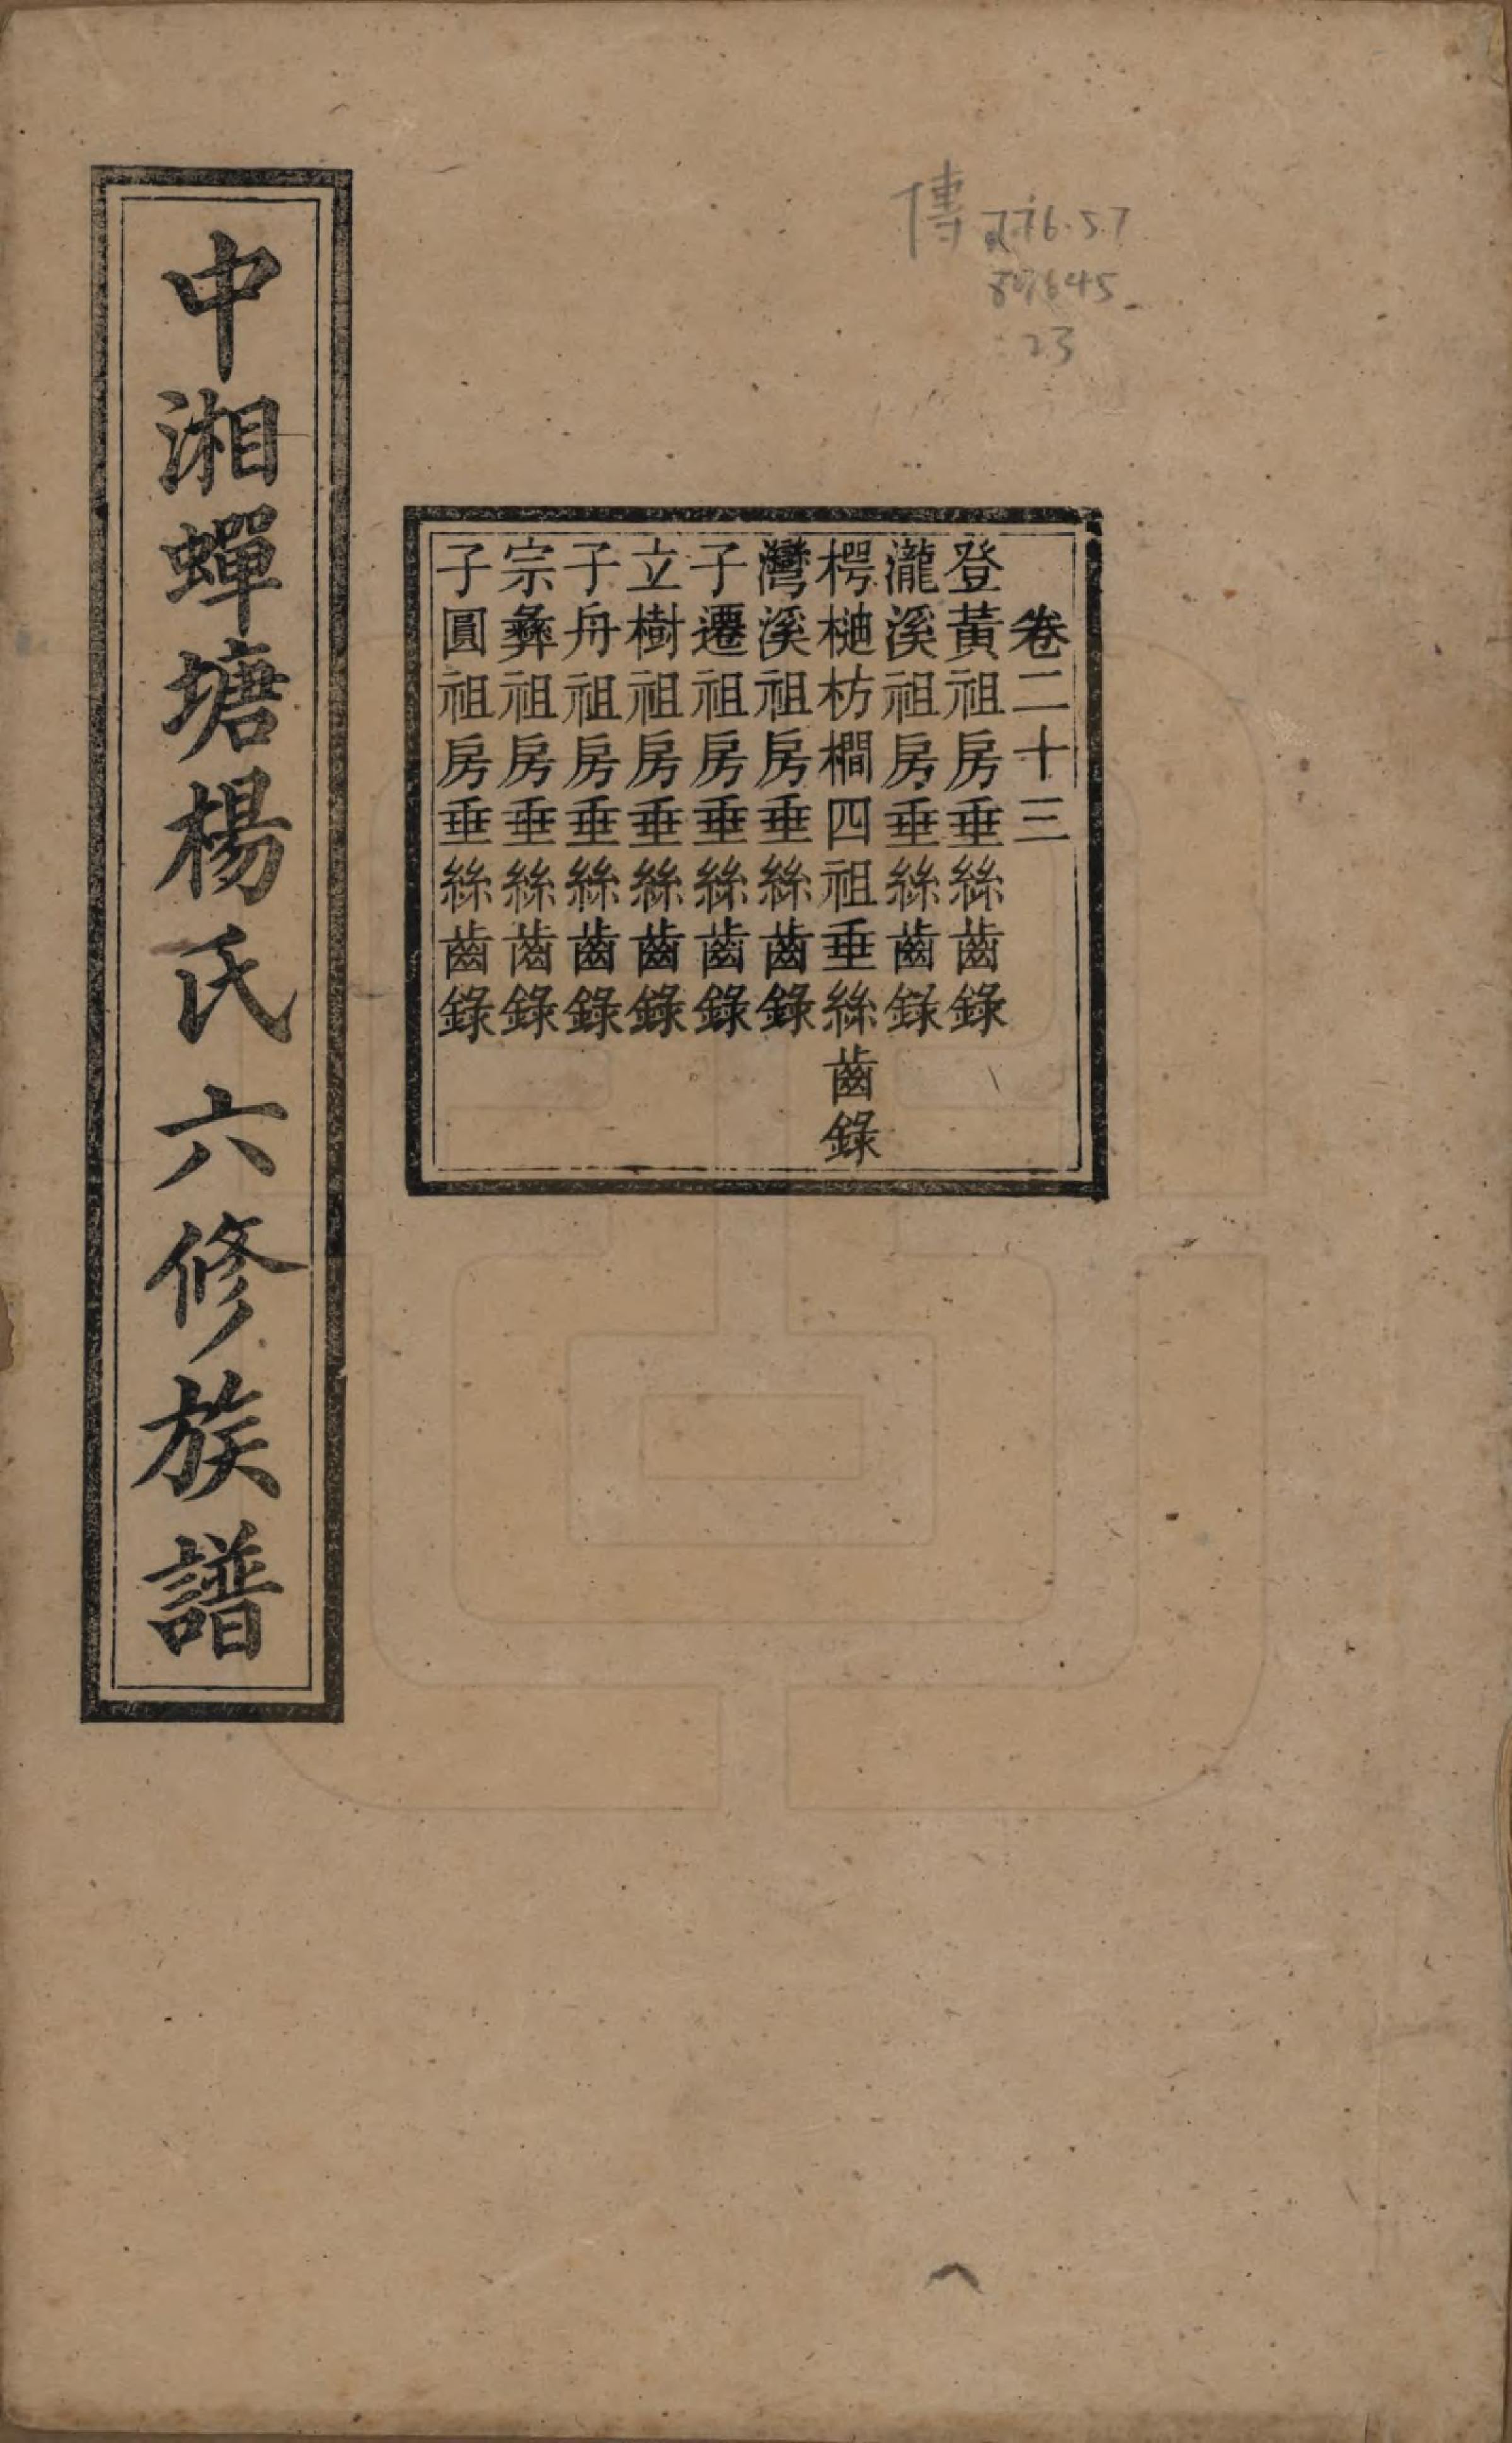 傳 776.57
869645
23
卷二十三
登黃祖房垂絲齒錄
瀧溪祖房垂絲齒錄
樗樋枋櫚四祖垂絲齒錄
灣溪祖房垂絲齒錄
子遷祖房垂絲齒錄
立樹祖房垂絲齒錄
子舟祖房垂絲齒錄
宗彝祖房垂絲齒錄
子圓祖房垂絲齒錄
中湘蟬塘楊氏六修族譜